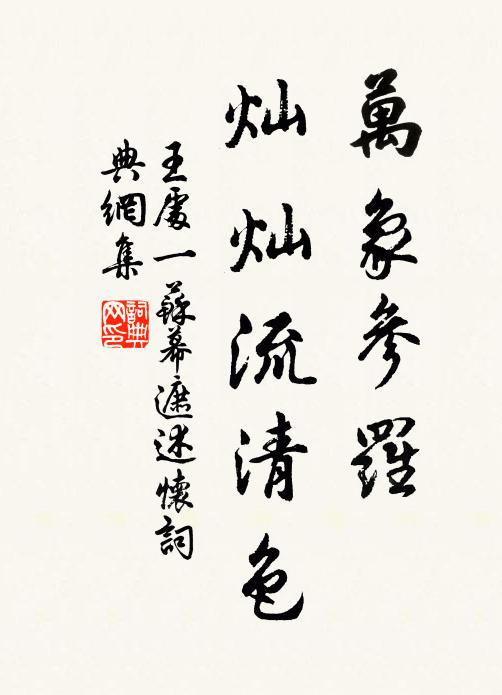 萬象參羅
灿灿流清色
王處一蘇幕遮述懷詞
典網集
詞典網印